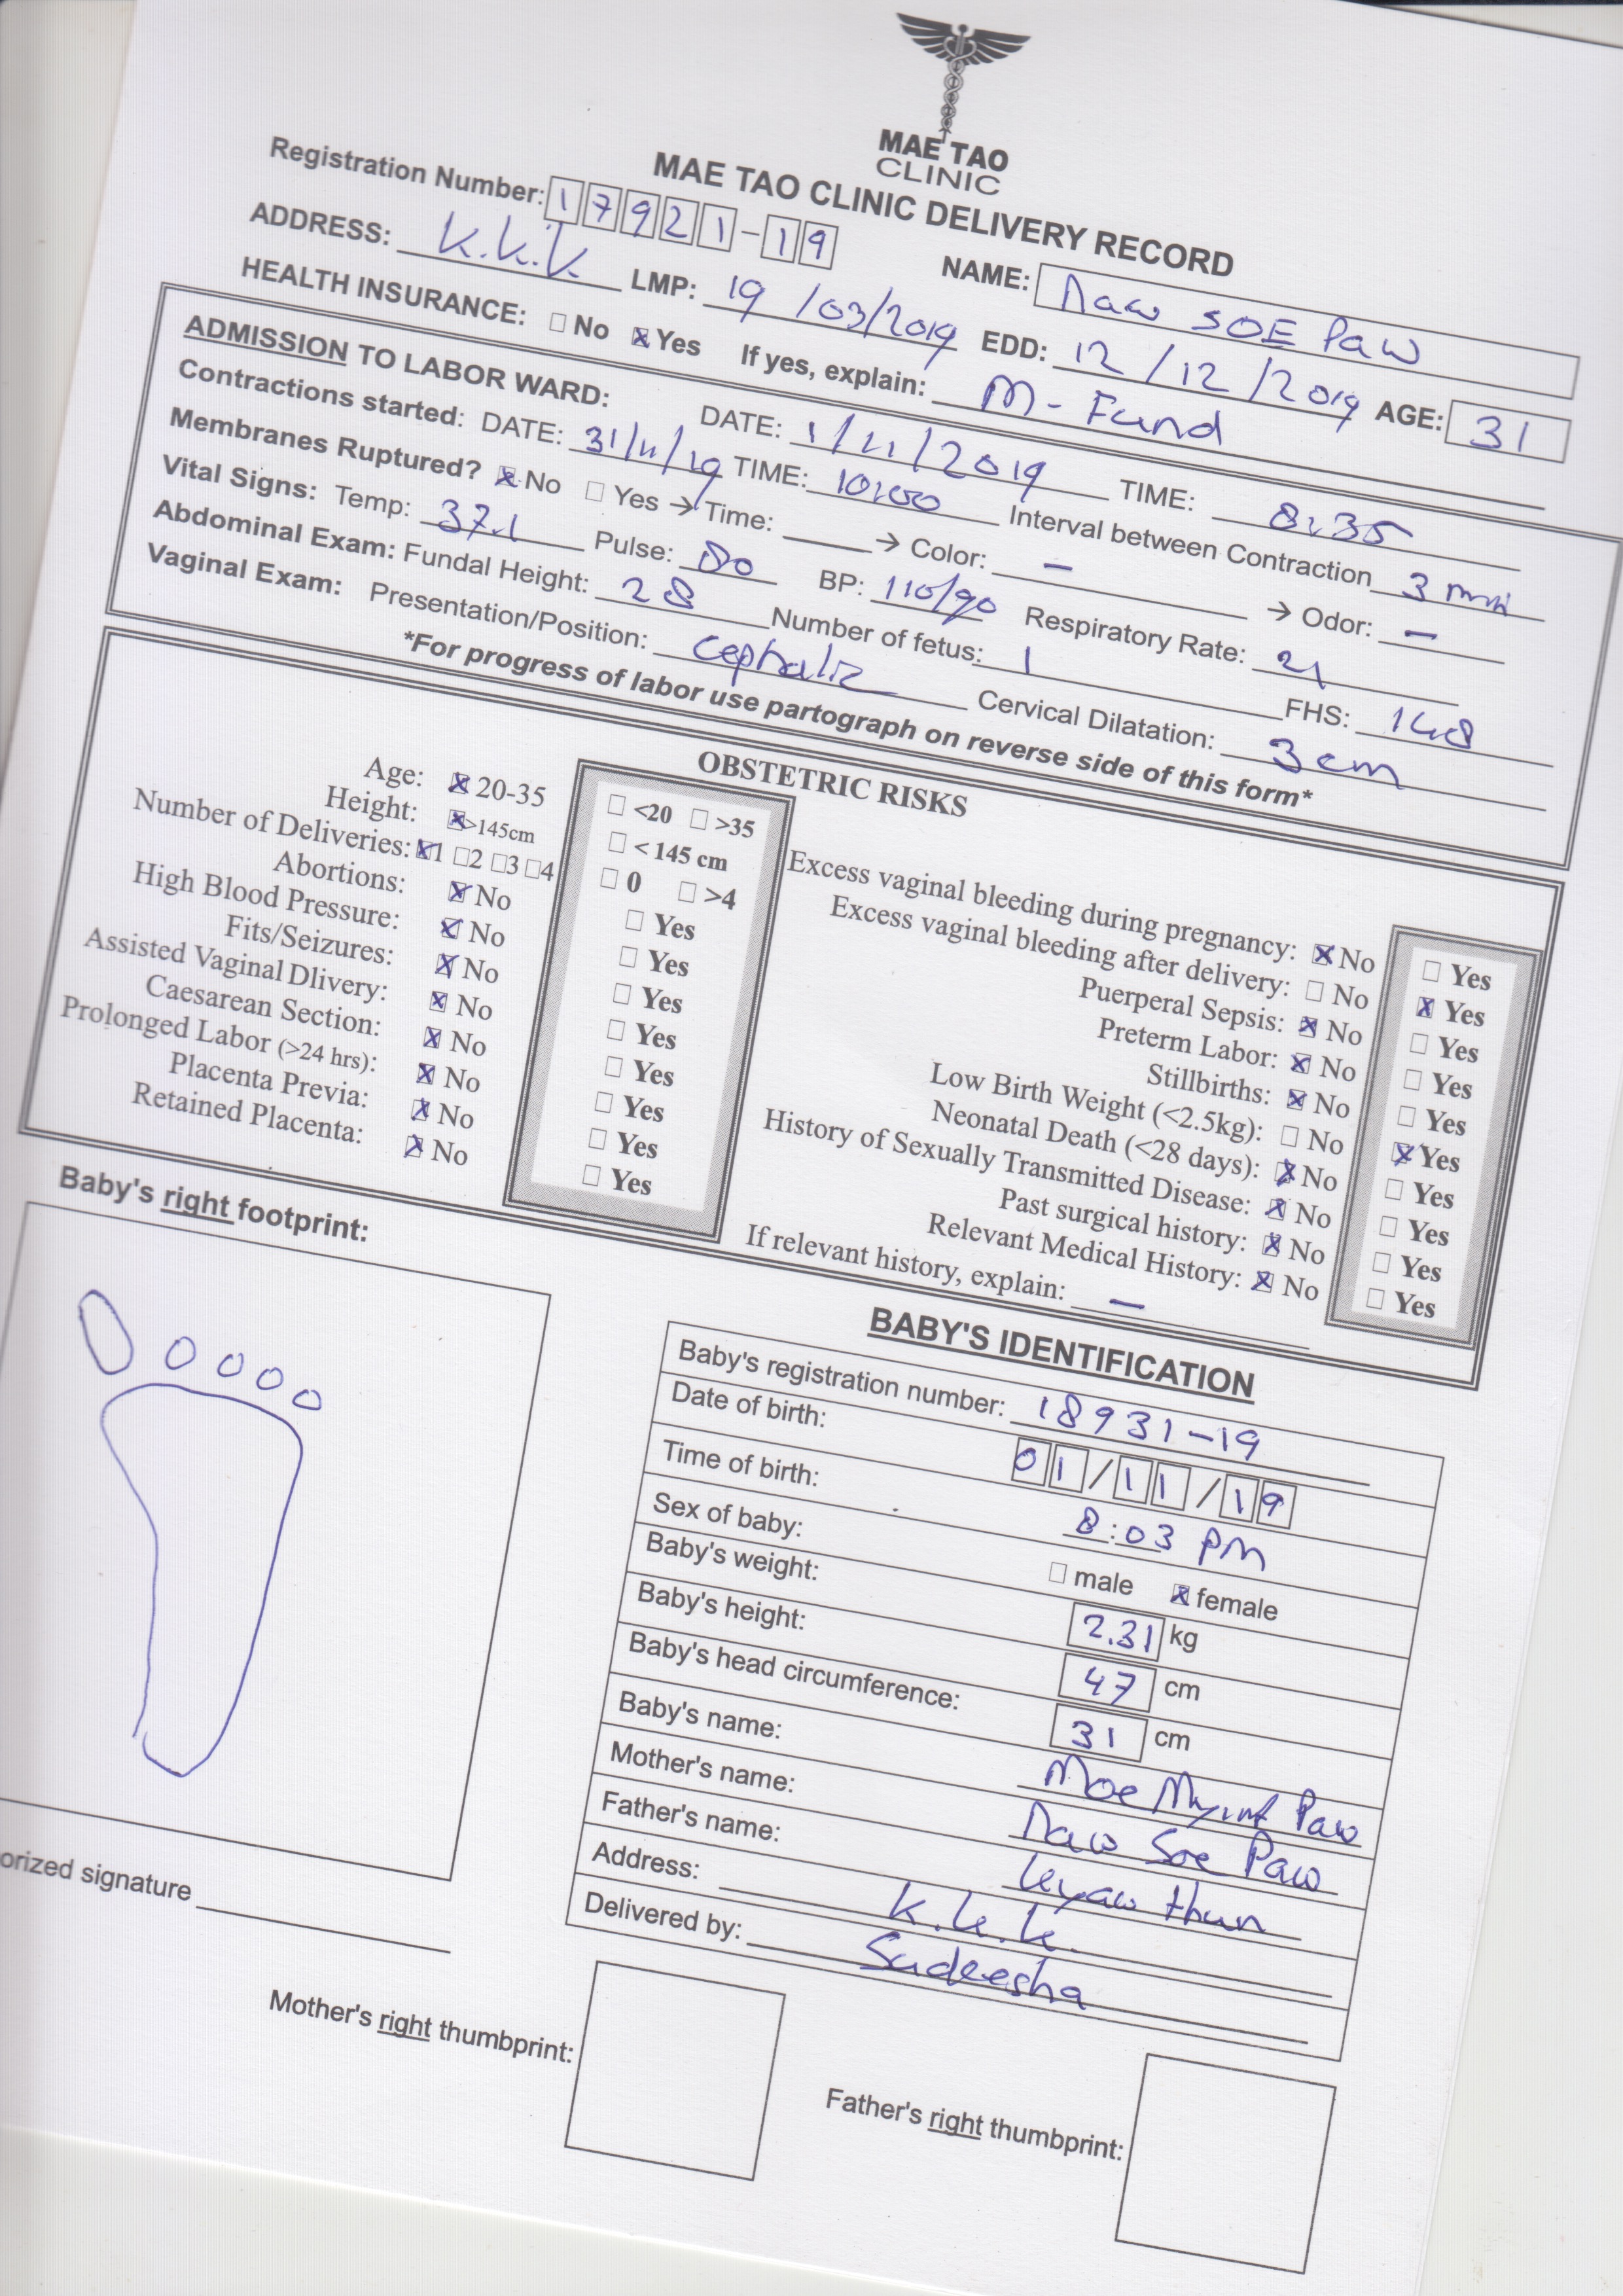 MAE TAO
CLINIC
MAE TAO CLINIC DELIVERY RECORD
Registration Number: 17921-19 NAME: Naw SOE Paw
ADDRESS: K.K.K. LMP: 19/03/2019 EDD: 12/12/2019 AGE: 31
HEALTH INSURANCE: ☐ No ☒ Yes If yes, explain: M-Fund
ADMISSION TO LABOR WARD: DATE: 1/11/2019 TIME: 8:35
Contractions started: DATE: 31/11/19 TIME: 10:00 Interval between Contraction 3 min
Membranes Ruptured? ☒ No ☐ Yes → Time: ____ → Color: – → Odor: –
Vital Signs: Temp: 37.1 Pulse: 80 BP: 110/90 Respiratory Rate: 21
Abdominal Exam: Fundal Height: 28 Number of fetus: 1 FHS: 148
Vaginal Exam: Presentation/Position: Cephalic Cervical Dilatation: 3cm
*For progress of labor use partograph on reverse side of this form*
OBSTETRIC RISKS
Age: ☒ 20-35 ☐ <20 ☐ >35
Height: ☒ >145cm ☐ < 145 cm
Number of Deliveries: ☒1 ☐2 ☐3 ☐4 ☐ 0 ☐ >4
Abortions: ☒ No ☐ Yes
High Blood Pressure: ☒ No ☐ Yes
Fits/Seizures: ☒ No ☐ Yes
Assisted Vaginal Dlivery: ☒ No ☐ Yes
Caesarean Section: ☒ No ☐ Yes
Prolonged Labor (>24 hrs): ☒ No ☐ Yes
Placenta Previa: ☒ No ☐ Yes
Retained Placenta: ☒ No ☐ Yes
Excess vaginal bleeding during pregnancy: ☒ No ☐ Yes
Excess vaginal bleeding after delivery: ☐ No ☒ Yes
Puerperal Sepsis: ☒ No ☐ Yes
Preterm Labor: ☒ No ☐ Yes
Stillbirths: ☒ No ☐ Yes
Low Birth Weight (<2.5kg): ☐ No ☒ Yes
Neonatal Death (<28 days): ☒ No ☐ Yes
History of Sexually Transmitted Disease: ☒ No ☐ Yes
Past surgical history: ☒ No ☐ Yes
Relevant Medical History: ☒ No ☐ Yes
If relevant history, explain: –
Baby's right footprint:
orized signature
BABY'S IDENTIFICATION
Baby's registration number: 18931-19
Date of birth: 01/11/19
Time of birth: 8:03 PM
Sex of baby: ☐ male ☒ female
Baby's weight: 2.31 kg
Baby's height: 47 cm
Baby's head circumference: 31 cm
Baby's name: Moe Myint Paw
Mother's name: Naw Soe Paw
Father's name: Kyaw thun
Address: K.K.K.
Delivered by: Sudeesha
Mother's right thumbprint:
Father's right thumbprint: